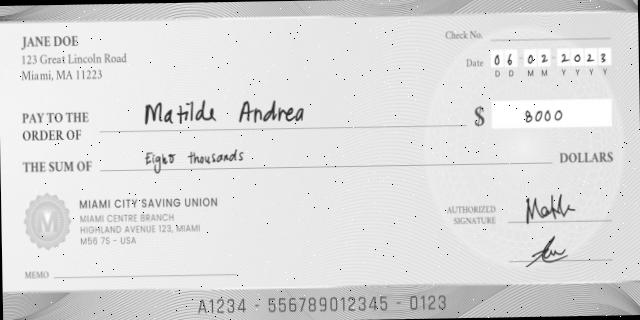 JANE DOE
123 Great Lincoln Road
Miami, MA 11223
Check No.
Date 06 02 2023
D D M M Y Y Y Y
PAY TO THE
ORDER OF Matilde Andrea $ 8000
THE SUM OF Eight thousands DOLLARS
MIAMI CITY SAVING UNION
MIAMI CENTRE BRANCH
HIGHLAND AVENUE 123, MIAMI
M56 7S - USA
M
AUTHORIZED
SIGNATURE
MEMO
A1234 - 556789012345 - 0123